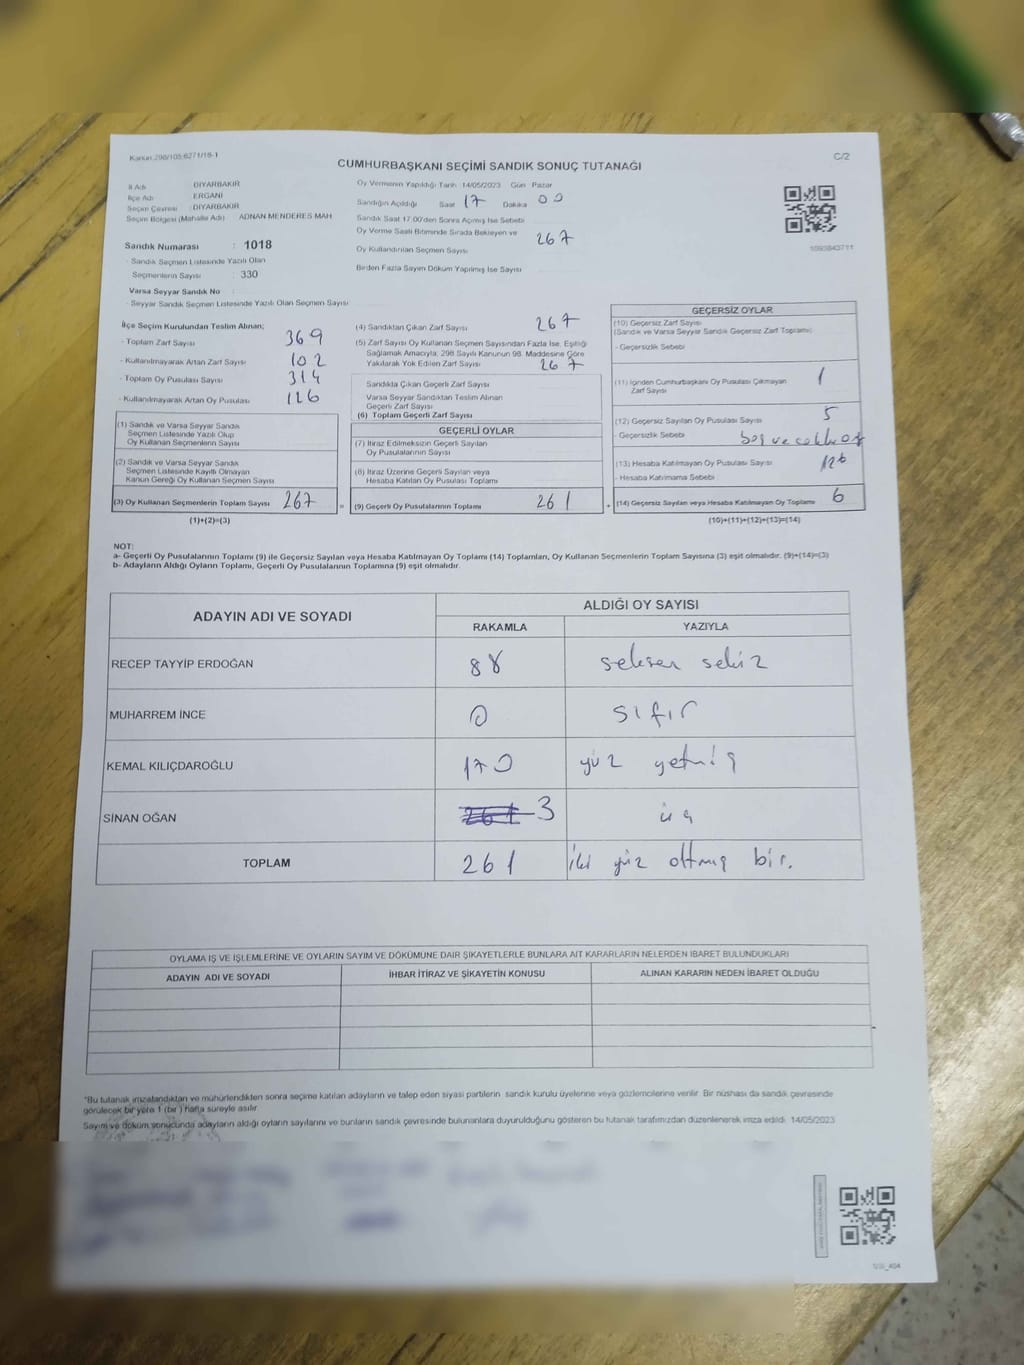 Kanun 298/105;6271/18-1
C/2
CUMHURBAŞKANI SEÇİMİ SANDIK SONUÇ TUTANAĞI
İl Adı : DİYARBAKIR
İlçe Adı : ERGANİ
Seçim Çevresi : DİYARBAKIR
Seçim Bölgesi (Mahalle Adı) ADNAN MENDERES MAH.
Sandık Numarası : 1018
- Sandık Seçmen Listesinde Yazılı Olan
Seçmenlerin Sayısı : 330
Varsa Seyyar Sandık No
- Seyyar Sandık Seçmen Listesinde Yazılı Olan Seçmen Sayısı
Oy Vermenin Yapıldığı Tarih 14/05/2023 Gün Pazar
Sandığın Açıldığı Saat 17 Dakika 00
Sandık Saat 17:00'den Sonra Açılmış İse Sebebi
Oy Verme Saati Bitiminde Sırada Bekleyen ve
Oy Kullandırılan Seçmen Sayısı 267
Birden Fazla Sayım Döküm Yapılmış İse Sayısı
1093843711
İlçe Seçim Kurulundan Teslim Alınan;
- Toplam Zarf Sayısı 369
- Kullanılmayarak Artan Zarf Sayısı 102
- Toplam Oy Pusulası Sayısı 314
- Kullanılmayarak Artan Oy Pusulası 126
(1) Sandık ve Varsa Seyyar Sandık
Seçmen Listesinde Yazılı Olup
Oy Kullanan Seçmenlerin Sayısı
(2) Sandık ve Varsa Seyyar Sandık
Seçmen Listesinde Kayıtlı Olmayan
Kanun Gereği Oy Kullanan Seçmen Sayısı
(3) Oy Kullanan Seçmenlerin Toplam Sayısı 267 =
(1)+(2)=(3)
(4) Sandıktan Çıkan Zarf Sayısı 267
(5) Zarf Sayısı Oy Kullanan Seçmen Sayısından Fazla İse, Eşitliği
Sağlamak Amacıyla, 298 Sayılı Kanunun 98. Maddesine Göre
Yakılarak Yok Edilen Zarf Sayısı 267
Sandıkta Çıkan Geçerli Zarf Sayısı
Varsa Seyyar Sandıktan Teslim Alınan
Geçerli Zarf Sayısı
(6) Toplam Geçerli Zarf Sayısı
GEÇERLİ OYLAR
(7) İtiraz Edilmeksizin Geçerli Sayılan
Oy Pusulalarının Sayısı
(8) İtiraz Üzerine Geçerli Sayılan veya
Hesaba Katılan Oy Pusulası Toplamı
(9) Geçerli Oy Pusulalarının Toplamı 261 +
GEÇERSİZ OYLAR
(10) Geçersiz Zarf Sayısı
(Sandık ve Varsa Seyyar Sandık Geçersiz Zarf Toplamı)
- Geçersizlik Sebebi
(11) İçinden Cumhurbaşkanı Oy Pusulası Çıkmayan
Zarf Sayısı 1
(12) Geçersiz Sayılan Oy Pusulası Sayısı 5
- Geçersizlik Sebebi boş ve
(13) Hesaba Katılmayan Oy Pusulası Sayısı 126
- Hesaba Katılmama Sebebi
(14) Geçersiz Sayılan veya Hesaba Katılmayan Oy Toplamı 6
(10)+(11)+(12)+(13)=(14)
NOT:
a- Geçerli Oy Pusulalarının Toplamı (9) ile Geçersiz Sayılan veya Hesaba Katılmayan Oy Toplamı (14) Toplamları, Oy Kullanan Seçmenlerin Toplam Sayısına (3) eşit olmalıdır. (9)+(14)=(3)
b- Adayların Aldığı Oyların Toplamı, Geçerli Oy Pusulalarının Toplamına (9) eşit olmalıdır.
ADAYIN ADI VE SOYADI
ALDIĞI OY SAYISI
RAKAMLA YAZIYLA
RECEP TAYYİP ERDOĞAN 88 seksen sekiz
MUHARREM İNCE 0 sıfır
KEMAL KILIÇDAROĞLU 170 yüz yetmiş
SİNAN OĞAN 261 3 üç
TOPLAM 261 iki yüz altmış bir.
OYLAMA İŞ VE İŞLEMLERİNE VE OYLARIN SAYIM VE DÖKÜMÜNE DAİR ŞİKAYETLERLE BUNLARA AİT KARARLARIN NELERDEN İBARET BULUNDUKLARI
ADAYIN ADI VE SOYADI İHBAR İTİRAZ VE ŞİKAYETİN KONUSU ALINAN KARARIN NEDEN İBARET OLDUĞU
*Bu tutanak imzalandıktan ve mühürlendikten sonra seçime katılan adayların ve talep eden siyasi partilerin sandık kurulu üyelerine veya gözlemcilerine verilir. Bir nüshası da sandık çevresinde
görülecek bir yere 1 (bir) hafta süreyle asılır.
Sayım ve döküm sonucunda adayların aldığı oyların sayılarını ve bunların sandık çevresinde bulunanlara duyurulduğunu gösteren bu tutanak tarafımızdan düzenlenerek imza edildi. 14/05/2023